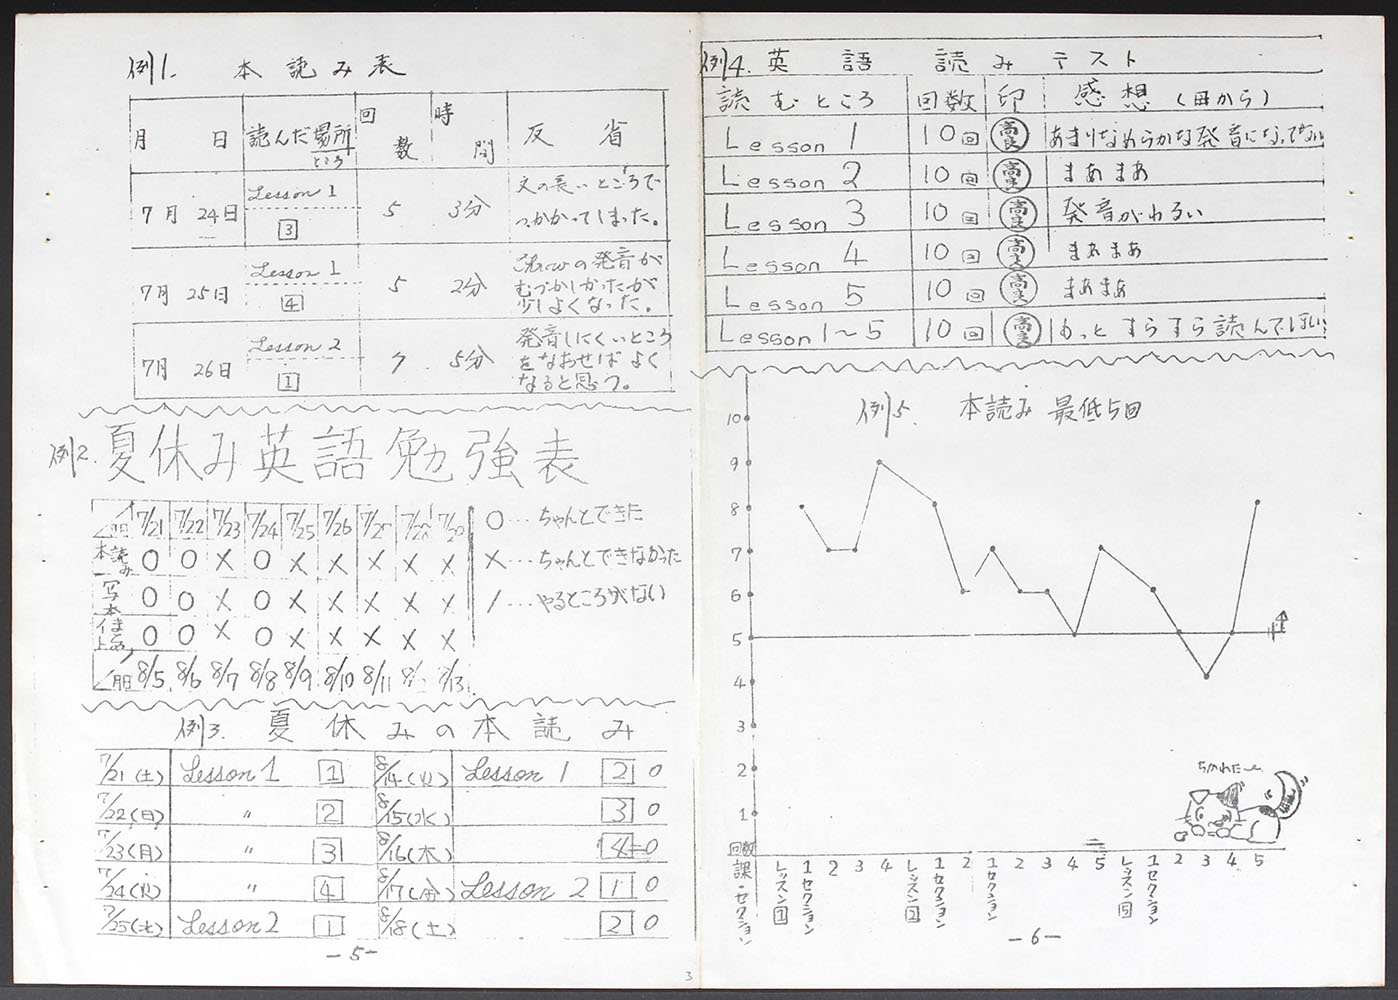 例1. 本読み表
月 日 読んだ場所 ところ 回数 時間 反省
7月 24日 Lesson 1 3 5 3分 文の長いところで
つっかかってしまった。
7月 25日 Lesson 1 4 5 2分 の発音が
むづかしかったが
少しよくなった。
7月 26日 Lesson 2 1 7 5分 発音しにくいところ
をなおせばよく
なると思う。
例2. 夏休み英語勉強表
月日 7/21 7/22 7/23 7/24 7/25 7/26
本読み ○ ○ × ○ × × × × ×
写本 ○ ○ × ○ × × × × ×
○ ○ × ○ × × × × ×
月日 8/5 8/6 8/7 8/8 8/9 8/10 8/11 8/13
○…ちゃんとできた
×…ちゃんとできなかった
/…やるところがない
例3. 夏休みの本読み
7/21(土) Lesson 1 1 8/14(火) Lesson 1 2 0
7/22(日) 〃 2 8/15(水) 3 0
7/23(月) 〃 3 8/16(木) 4 0
7/24(火) 〃 4 8/17(金) Lesson 2 1 0
7/25(水) Lesson 2 1 8/18(土) 2 0
-5-
例4. 英語読みテスト
読むところ 回数 印 感想(母から)
Lesson 1 10回 高良 あまりなめらかな発音になってない
Lesson 2 10回 高良 まあまあ
Lesson 3 10回 高良 発音がわるい
Lesson 4 10回 高良 まあまあ
Lesson 5 10回 高良 まあまあ
Lesson 1~5 10回 高良 もっとすらすら読んでほしい
例5. 本読み 最低5回
10
9
8
7
6
5
4
3
2
1
ちかれた~
回数
課・セクション
レッスン1 1セクション 2 3 4 レッスン2 1セクション 2 1セクション 2 3 4 5 レッスン 1セクション 2 3 4 5
-6-
3